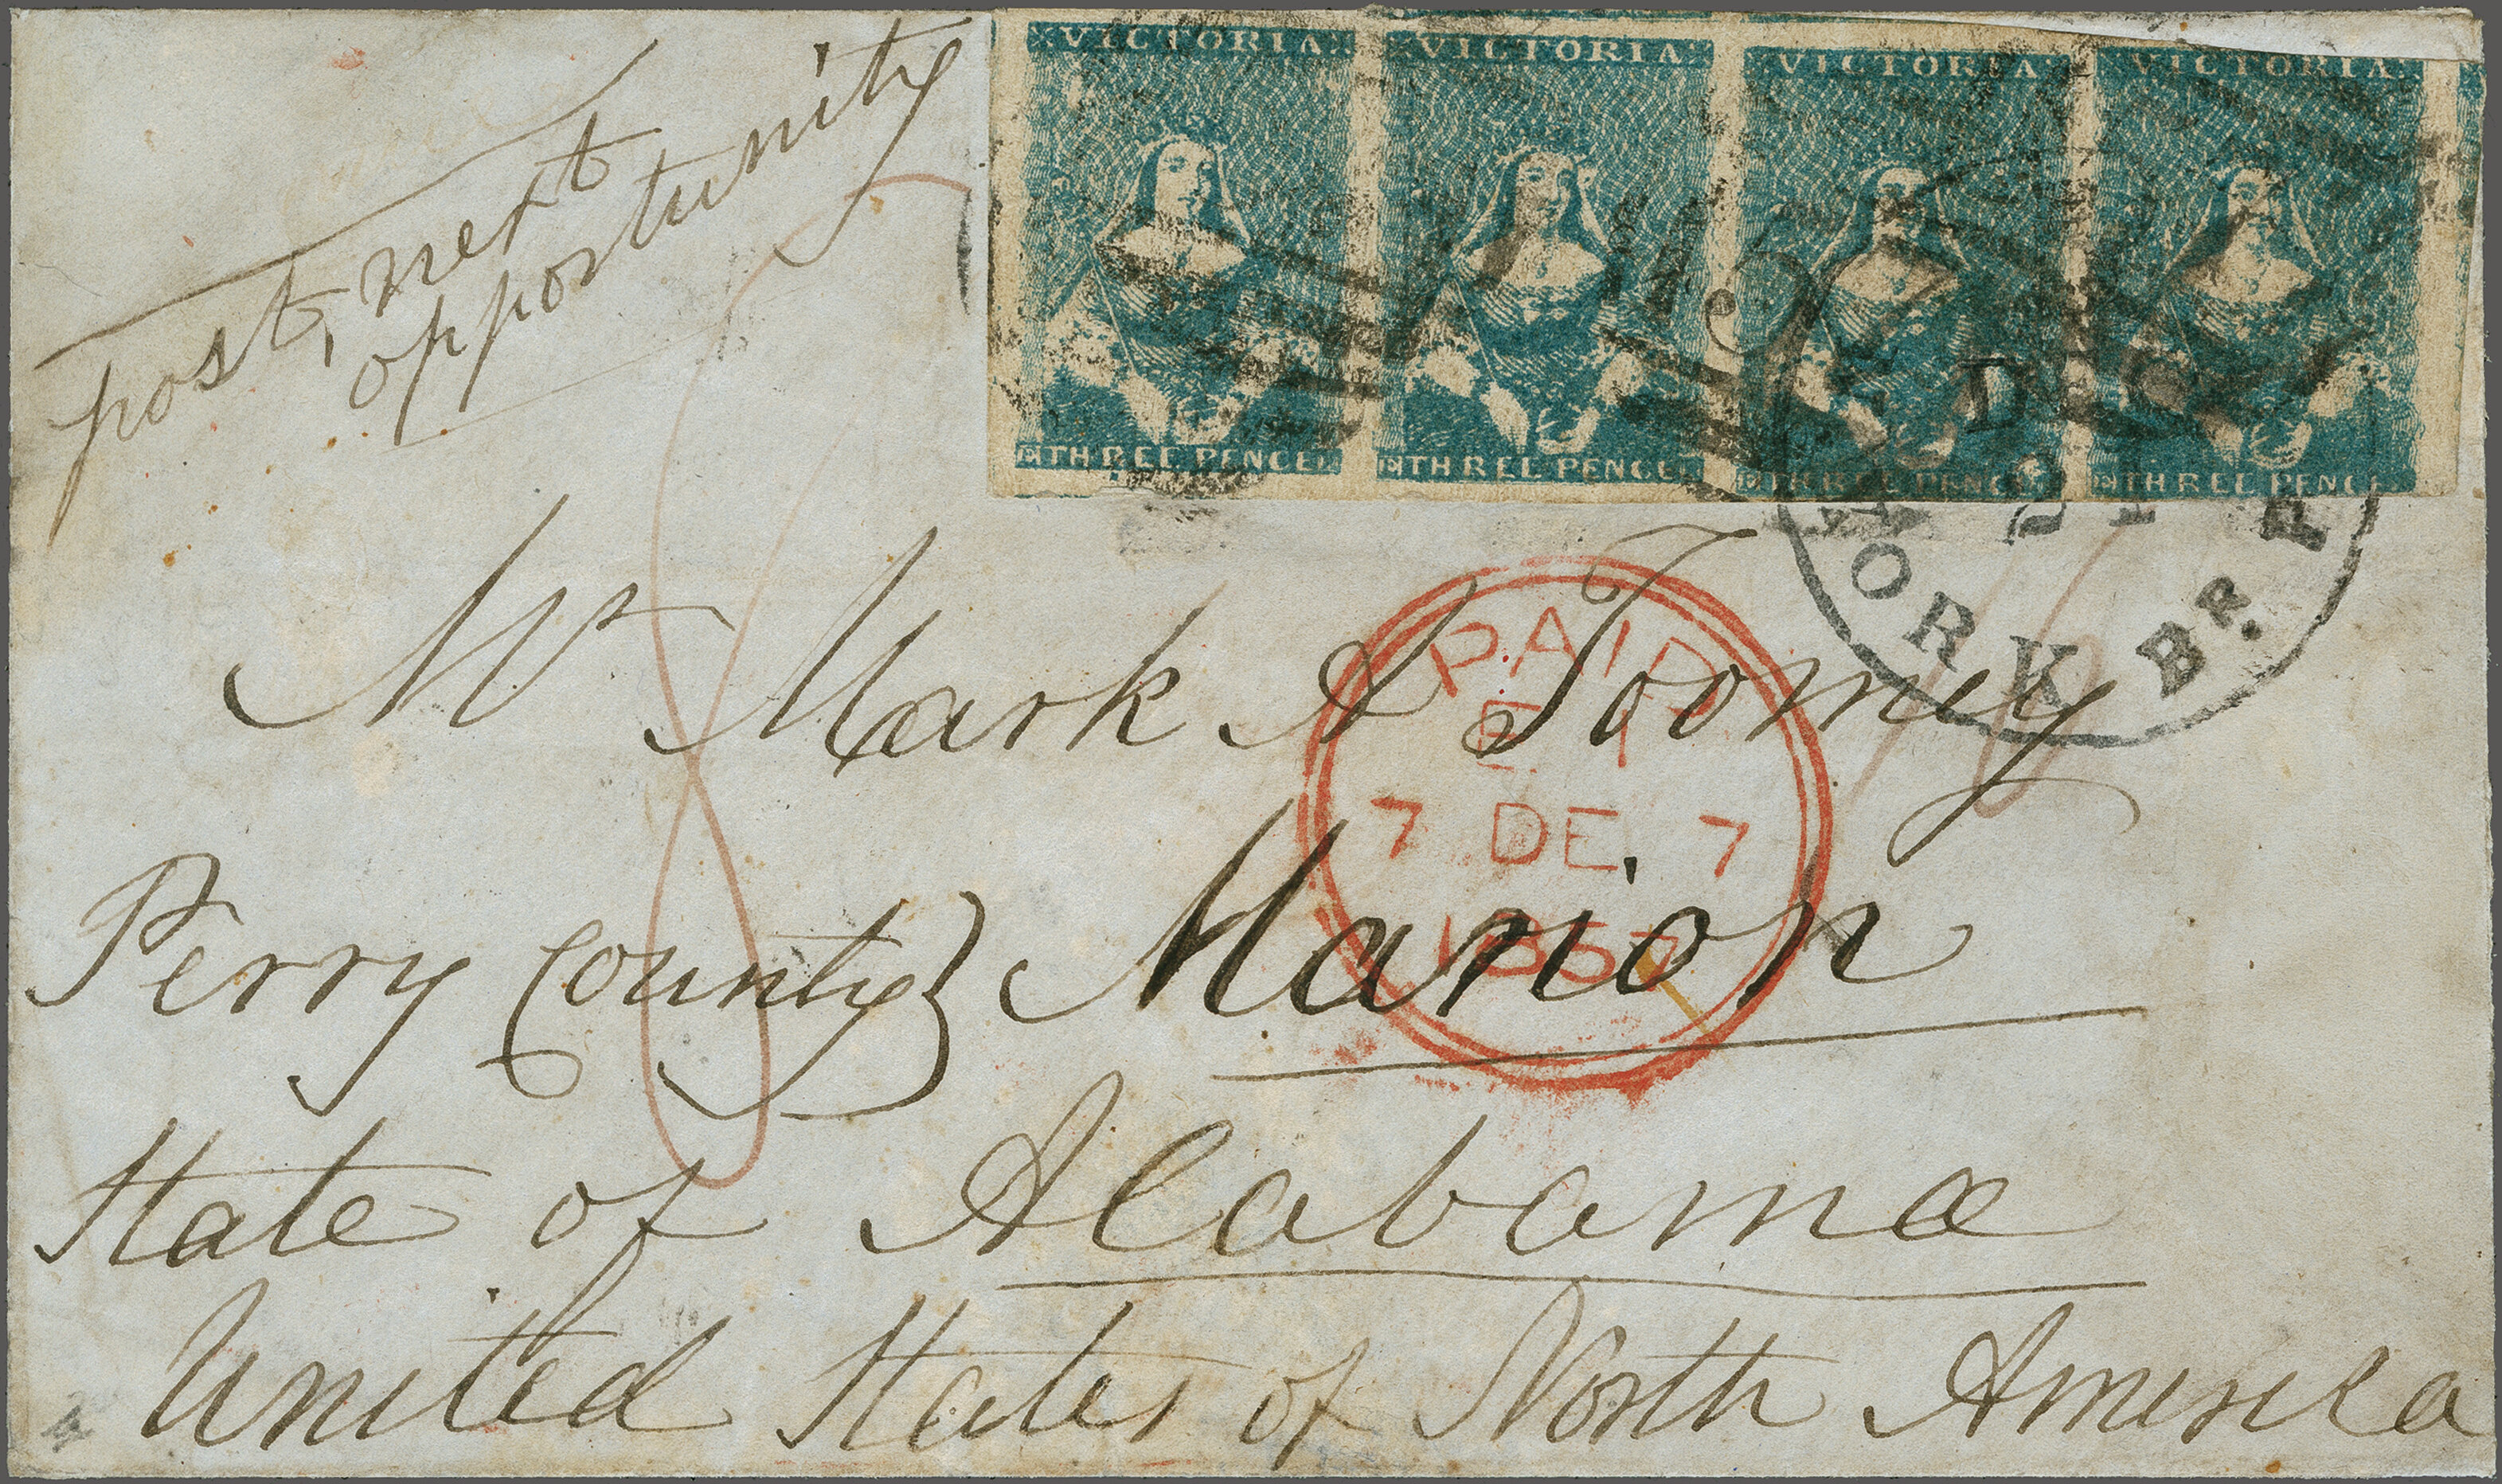 post, next
opportunity
VICTORIA VICTORIA VICTORIA VICTORIA
THREE PENCE THREE PENCE THREE PENCE THREE PENCE
YORK Br. P
Mr Mark A Toomey
PAID
7 DE 7
1857
Perry County} Marion
State of Alabama
United States of North America